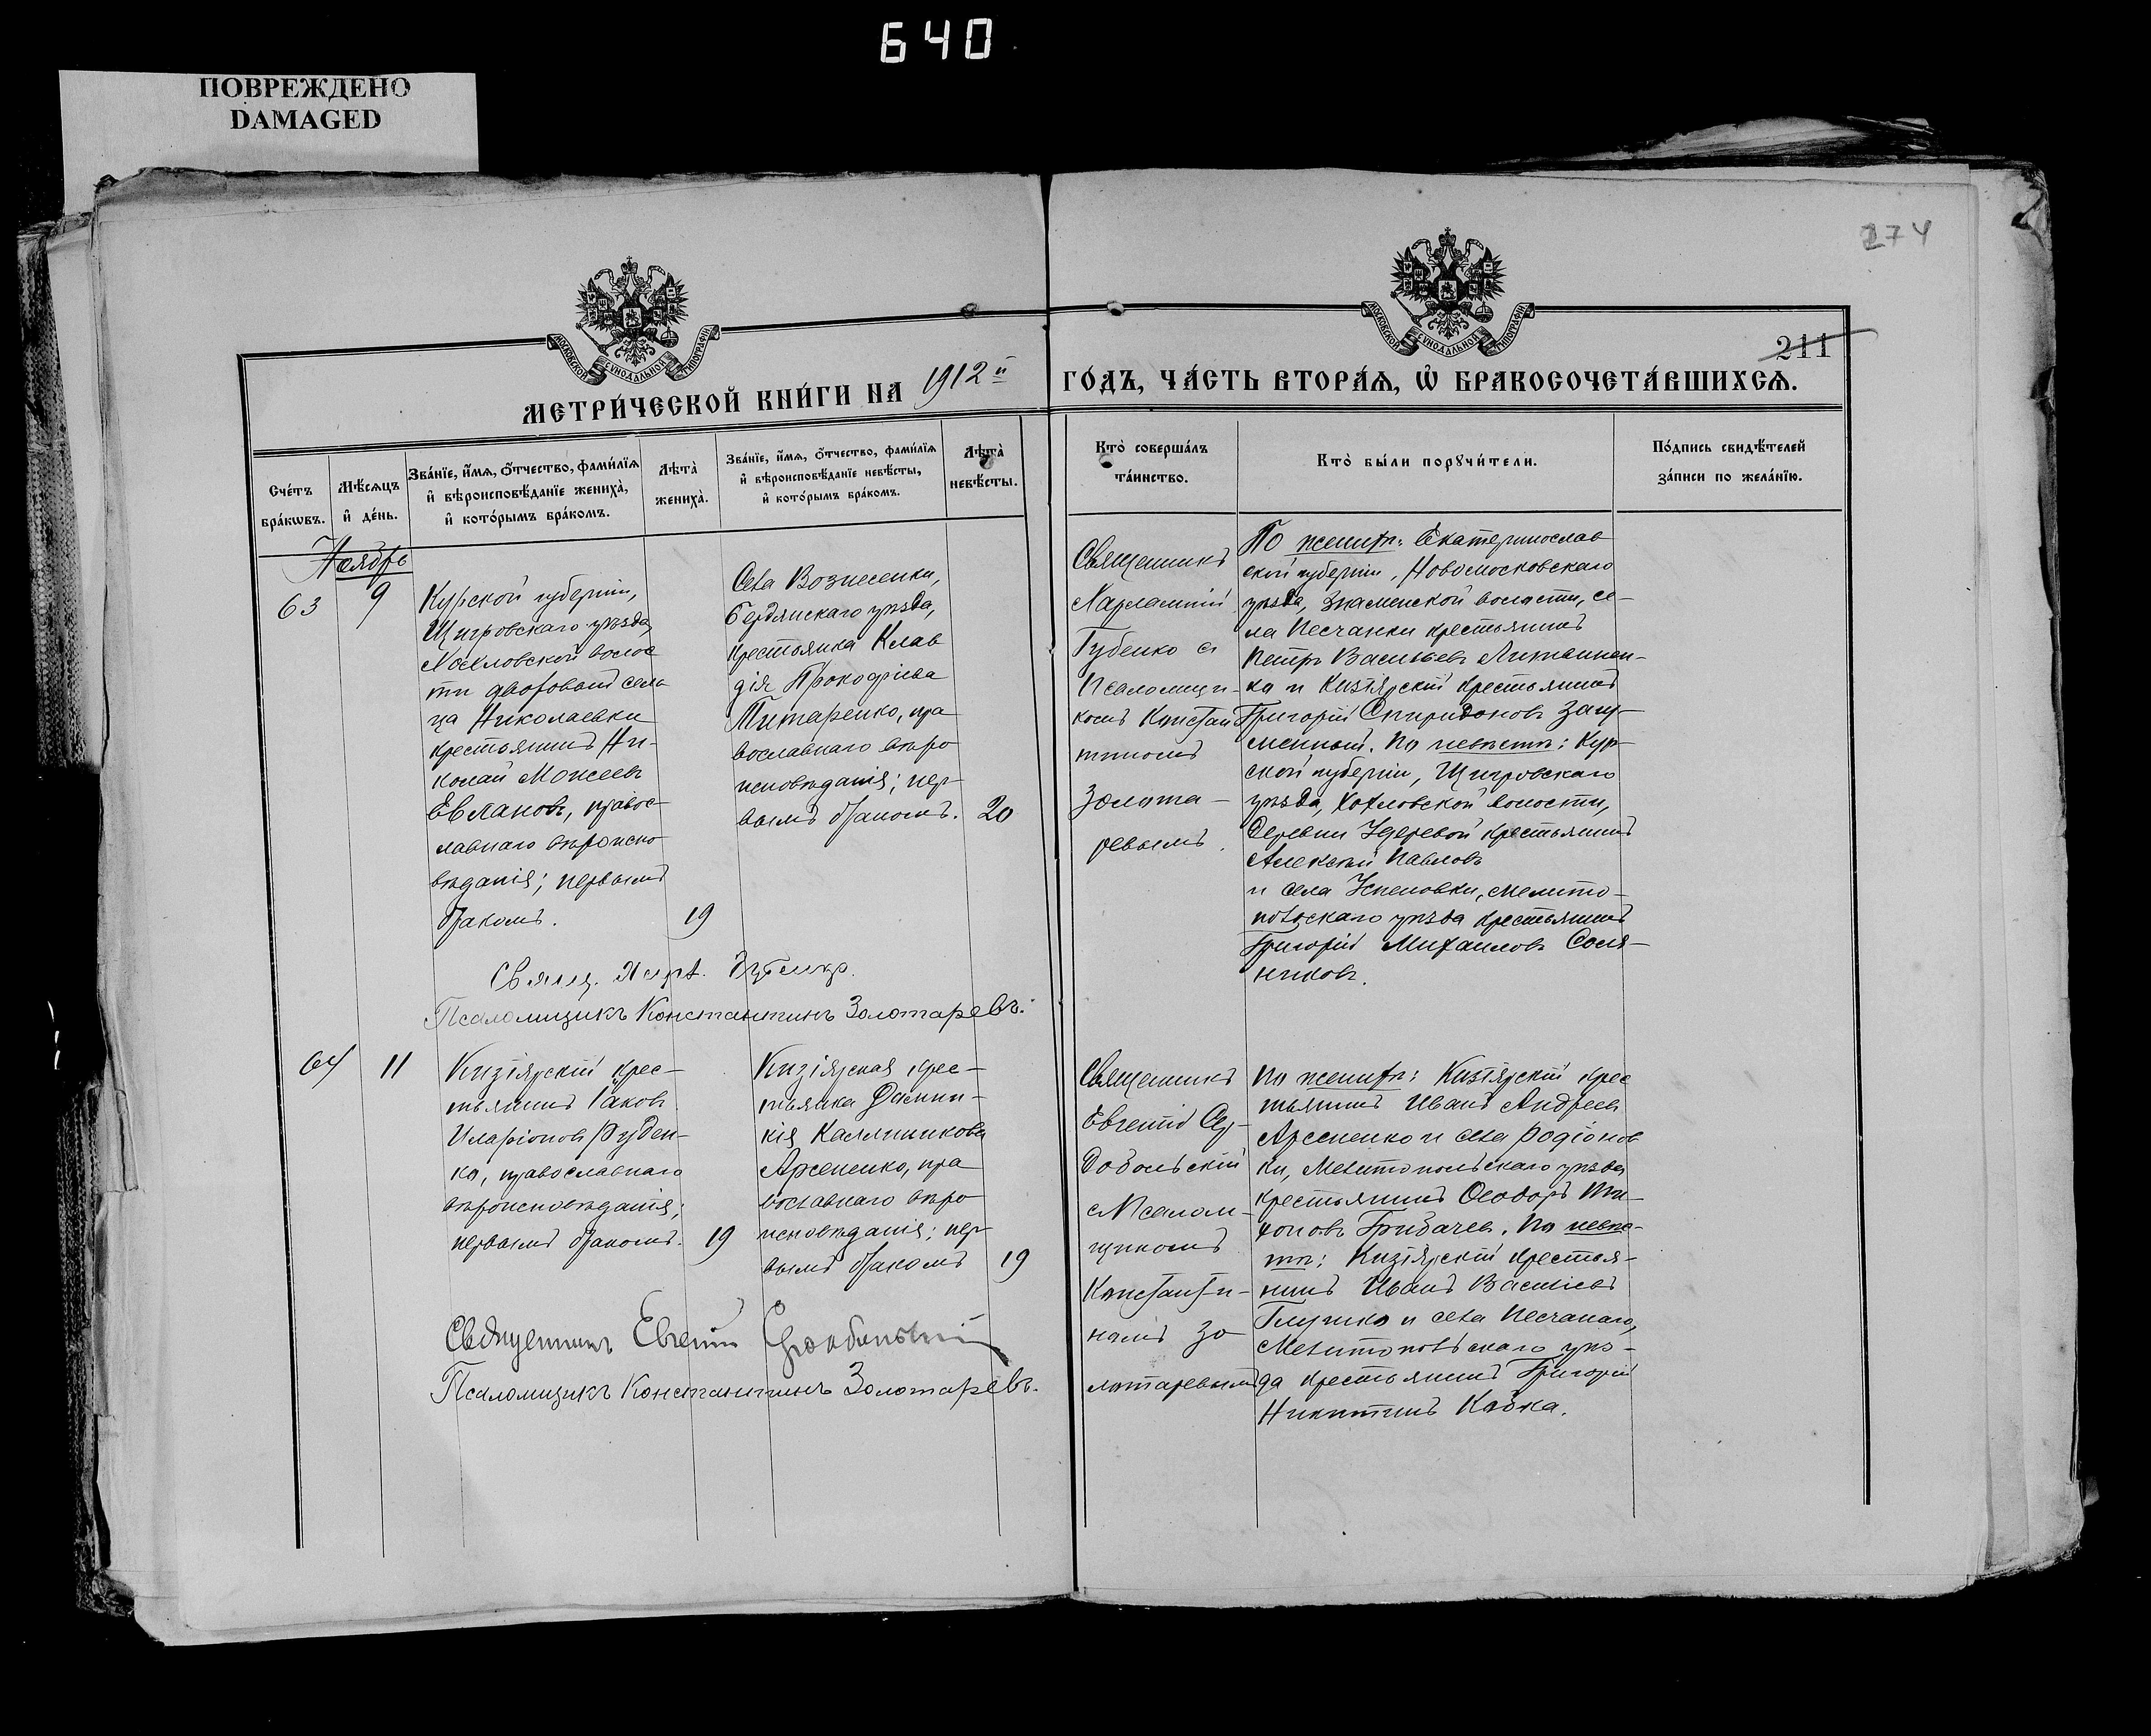 640
ПОВРЕЖДЕНО
DAMAGED
274
211
МОСКОВСКОЙ СѴНОДАЛЬНОЙ ТИПОГРАФІИ
МОСКОВСКОЙ СѴНОДАЛЬНОЙ ТИПОГРАФІИ
МЕТРИ́ЧЕСКОЙ КНИ́ГИ НА 1912й ГО́ДЪ, ЧА́СТЬ ВТОРА́Я, Ѡ҆ БРАКОСОЧЕТА́ВШИХСЯ.
Сче́тъ
бра́кѡвъ.
Мѣ́сяцъ
и҆ де́нь.
Зва́нїе, и҆́мя, о҆́тчество, фами́лїя
и҆ вѣроисповѣ́данїе жениха̀,
и҆ кото́рымъ бра́комъ.
Лѣта̀
жениха̀.
Зва́нїе, и҆́мя, о҆́тчество, фами́лїя
и҆ вѣроисповѣ́данїе невѣ́сты,
и҆ кото́рымъ бра́комъ.
Лѣта̀
невѣ́сты.
Кто̀ соверша́лъ
та́инство.
Кто̀ бы́ли порꙋчи́тели.
По́дпись свидѣ́телей
за́писи по жела́нїю.
Ноябрь
63
9
Курской губерніи,
Щигровскаго уѣзда,
Хохловской волос
ти дворовый сель
ца Николаевки
крестьянинъ Ни-
колай Моисеевъ
Евлановъ, правос-
лавнаго вѣроиспо
вѣданія; первымъ
бракомъ.
19
Села Вознесенки,
Бердянскаго уѣзда,
крестьянка Клав
дія Прокофіева
Титаренко, пра
вославнаго вѣро
исповѣданія; пер-
вымъ бракомъ.
20
Священникъ
Харлампій
Губенко съ
псаломщи-
комъ Констан
тиномъ
Золота-
ревымъ.
По женихѣ: Екатеринослав
ской губерніи, Новомосковскаго
уѣзда, Знаменской волости, се-
ла Песчанки крестьянинъ
Петръ Васильевъ
ка и Кизіярскій крестьянинъ
Григорій Спиридоновъ Загу-
менный. По невѣстѣ: Кур-
ской губерніи, Щигровскаго
уѣзда, Хохловской волости,
деревни крестьянинъ
Алексѣй Павловъ
и села Успеновки, Мелито-
польскаго уѣзда крестьянинъ
Григорій Михаиловъ Соля-
никовъ.
Свящ. Харл. Губенко.
Псаломщикъ Константинъ Золотаревъ.
64
11
Кизіярскій крес-
тьянинъ Іаковъ
Иларіоновъ Руден-
ко, православнаго
вѣроисповѣданія;
первымъ бракомъ.
19
Кизіярская крес-
тьянка Домни-
кія Каллиникова
Арсененко, пра
вославнаго вѣро
исповѣданія; пер
вымъ бракомъ
19
Священникъ
Евгеній
с псалом-
щикомъ
Константи-
номъ Зо
лотаревымъ
По женихѣ: Кизіярскій крес
тьянинъ Иванъ Андреевъ
Арсененко и села Родіонов
ки, Мелитопольскаго уѣзда
крестьянинъ Ѳеодоръ Ти-
хоновъ Грибачевъ. По невѣс-
тѣ: Кизіярскій крестья-
нинъ Иванъ Васильевъ
Глушко и села Песчанаго,
Мелитопольскаго уѣз-
да крестьянинъ Григорій
Никитинъ Кабка.
Священникъ Евгеній
Псаломщикъ Константинъ Золотаревъ.